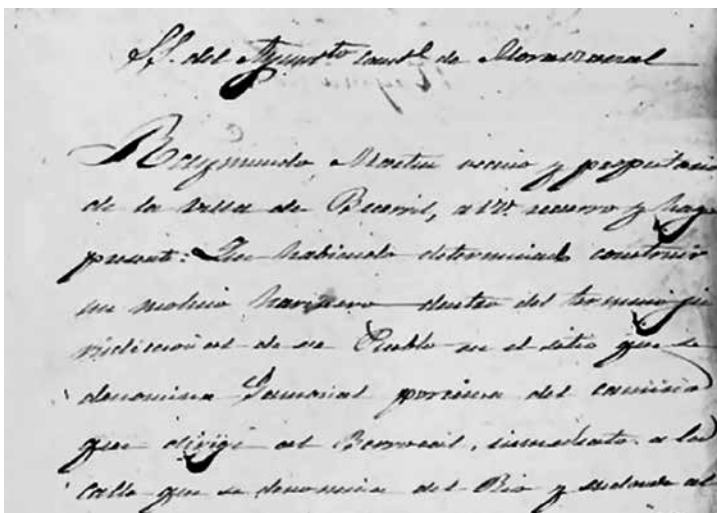 SS. del Ayunto Const.l de
Raymundo Martin vecino y propietario
de la villa de Becerril, a VV. recurro y hago
present: Que habiendo determinado construir
un molino harinero dentro del termino ju
risdiccional de ese Pueblo en el sitio que se
denomina del camino
que dirige al Berrocal, inmediato a la
calle que se denomina del Rio y al